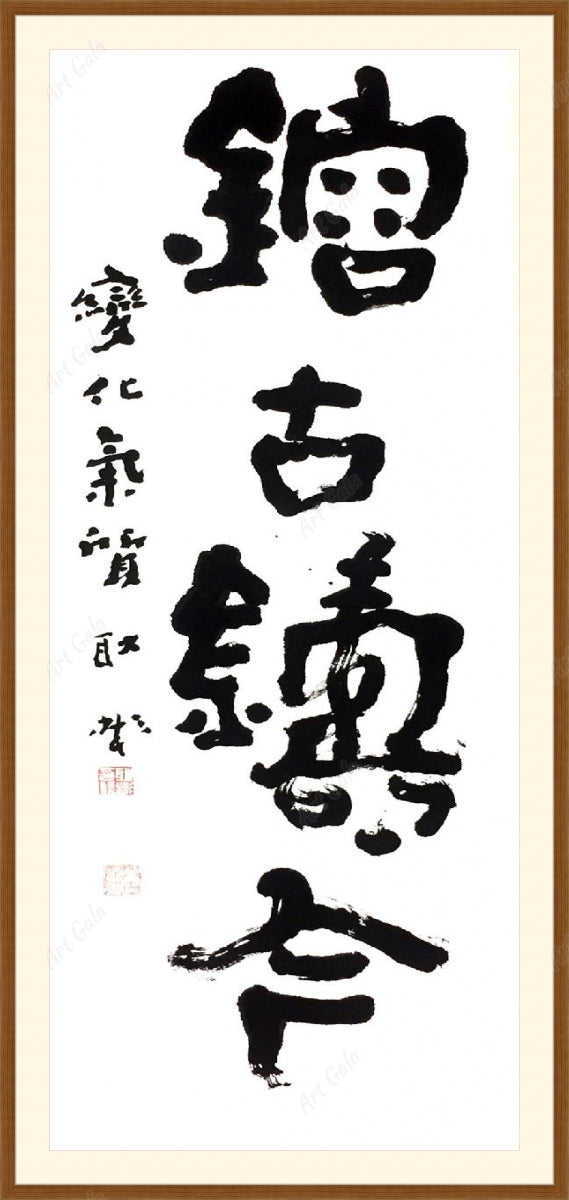 鎔古鑄今
變化氣質 耿
Art Gala